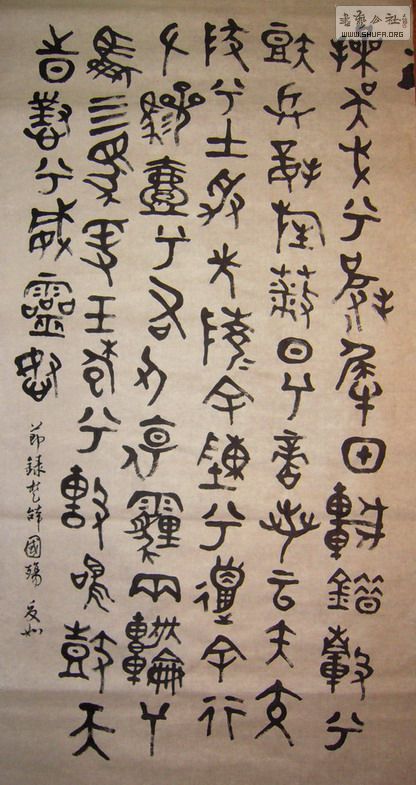 書法公社
WWW.SHUFA.ORG
操吴戈兮被犀甲車錯轂兮
短兵接旌蔽日兮敵若云矢交
墜兮士爭先凌余陣兮躐余行
左驂殪兮右刃傷霾兩輪兮
馽四馬援玉枹兮擊鳴鼓天
時懟兮威靈怒
節録楚辞國殤